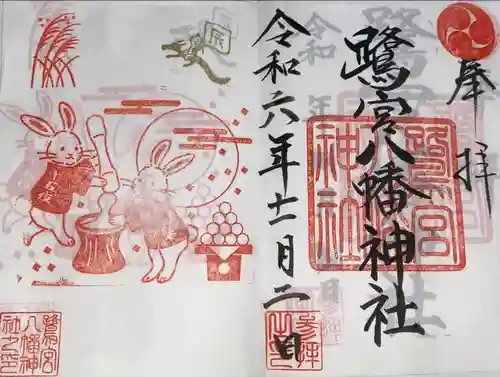 奉拝
鷺宮八幡神社
令和六年十一月二日
鷺宮
八幡神
社之印
参拝
辰
十五夜